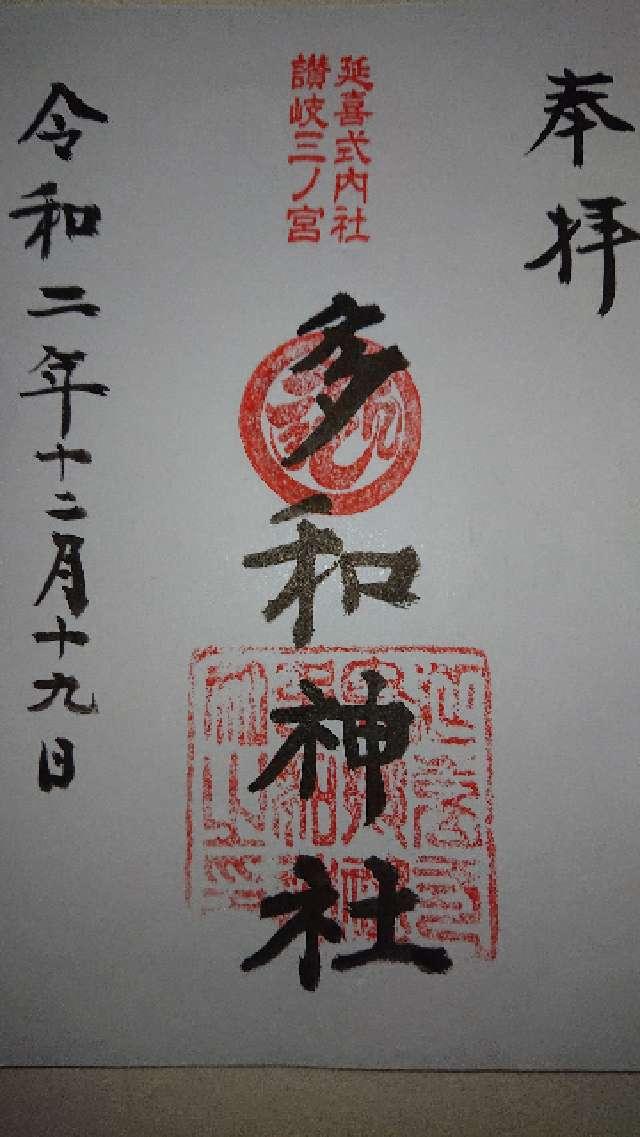 奉拝
延喜式内社
讃岐三ノ宮
多和神社
令和二年十二月十九日